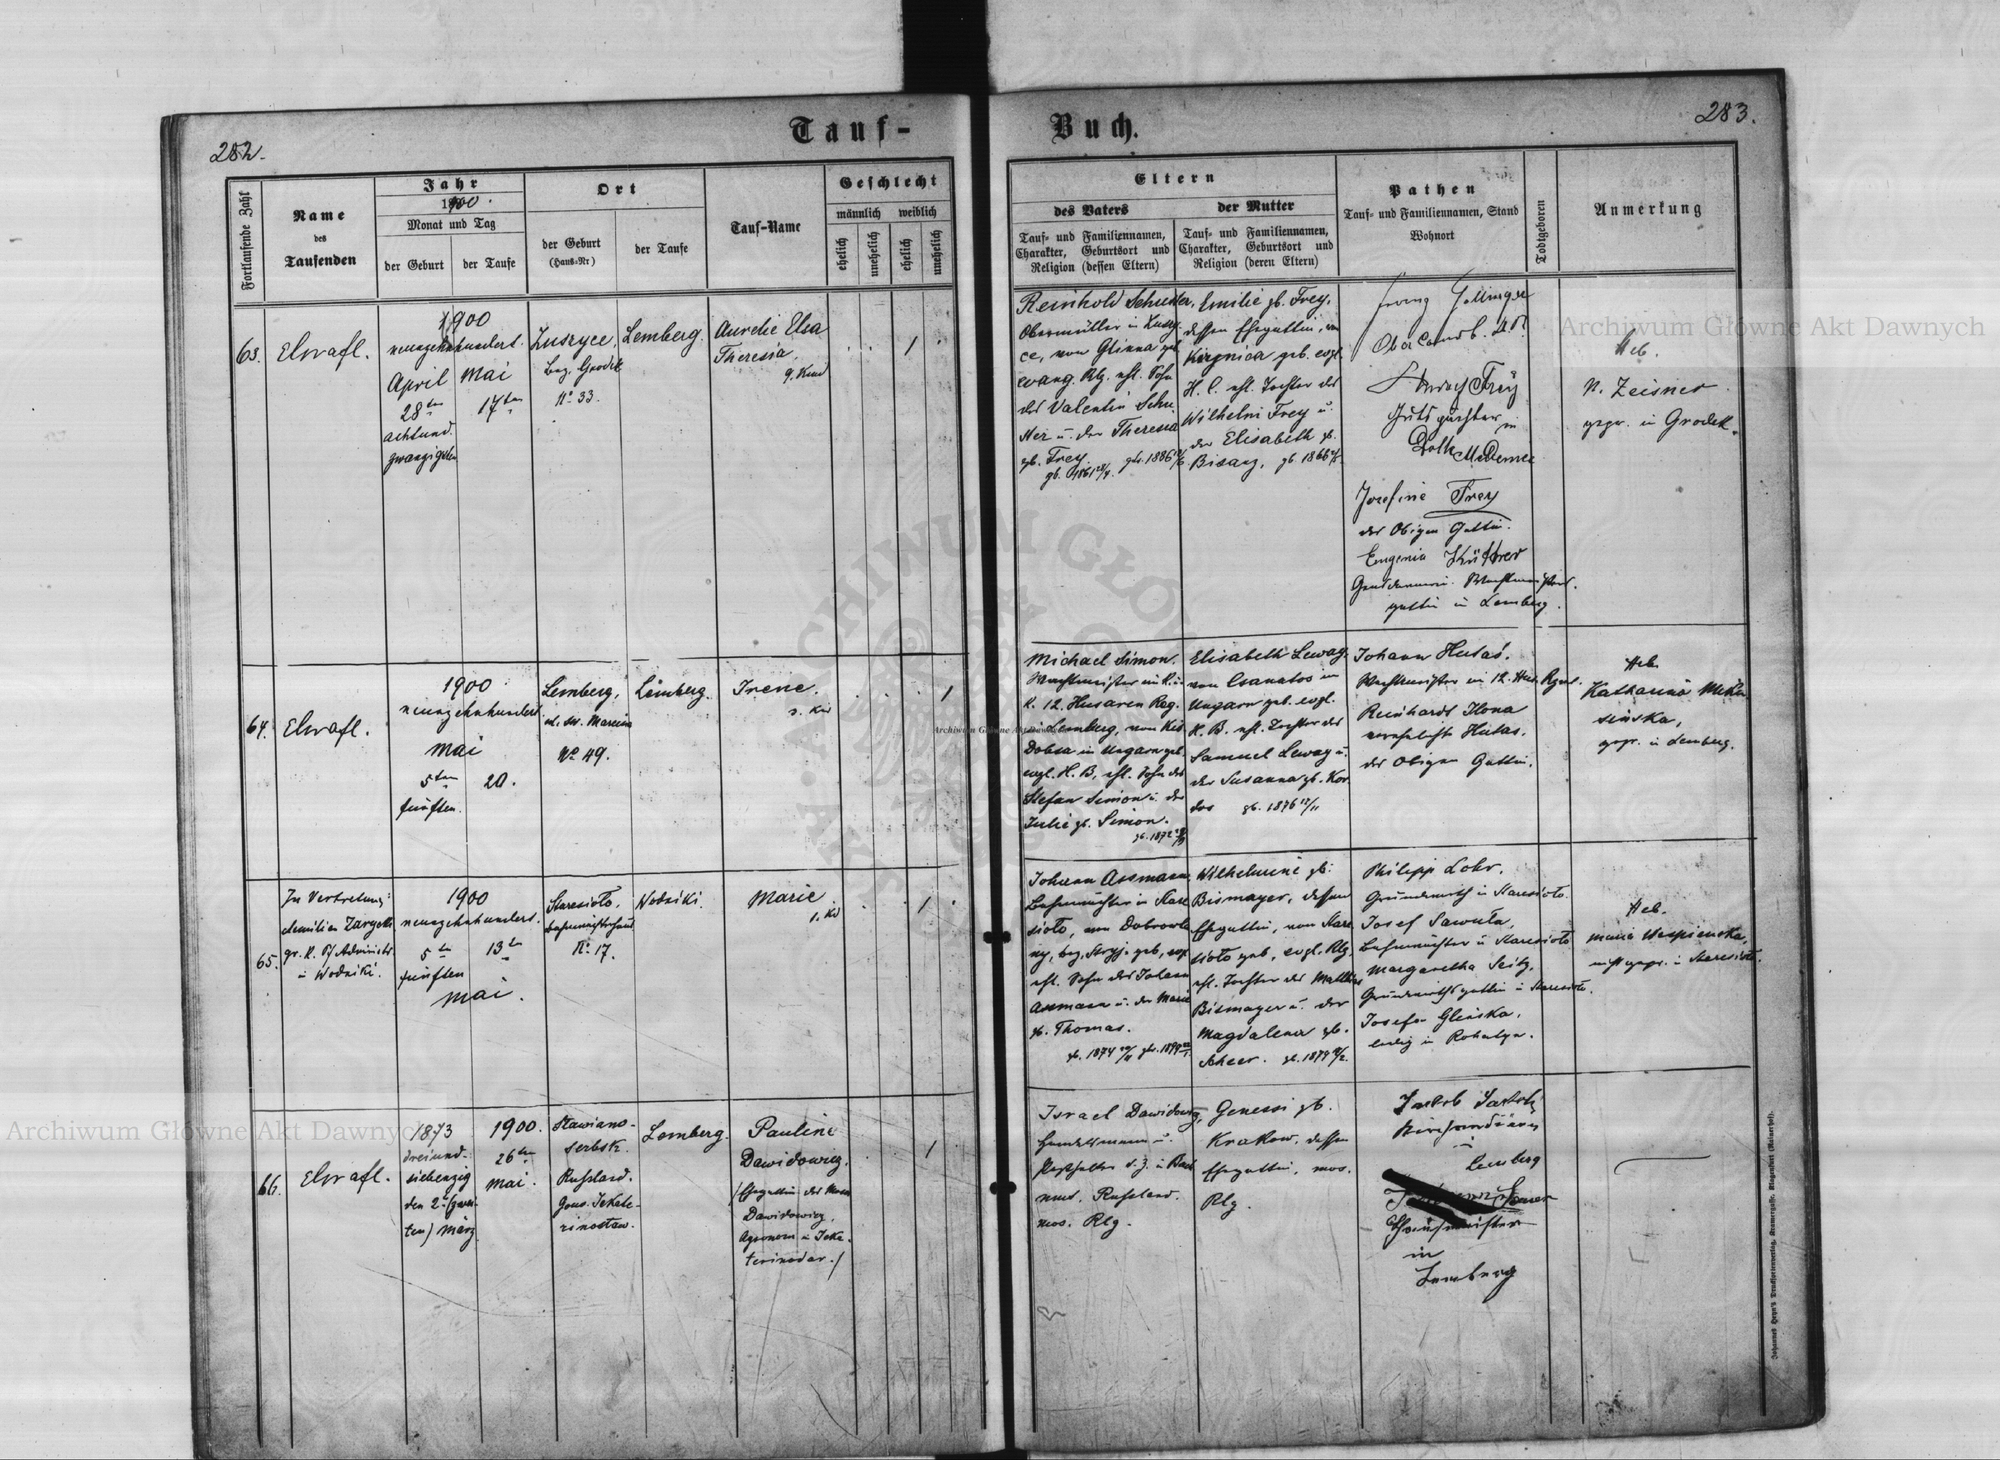 282.
Tauf-
Buch.
283.
Fortlaufende Zahl
Name
des
Taufenden
Jahr
1900.
Monat und Tag
der Geburt
der Taufe
Ort
der Geburt
(Haus-Nr)
der Taufe
Tauf-Name
Geschlecht
männlich weiblich
ehelich
unehelich
ehelich
unehelich
Eltern
des Vaters
Tauf- und Familiennamen,
Charakter, Geburtsort und
Religion (dessen Eltern)
der Mutter
Tauf- und Familiennamen,
Charakter, Geburtsort und
Religion (deren Eltern)
Pathen
Tauf- und Familiennamen, Stand
Wohnort
Todtgeboren
Anmerkung
63.
1900
neunzehnhundert.
April
28ten
achtund-
zwanzigsten
Mai
17ten
Bez. Grodek
No 33.
Lemberg.
Aurelie Elsa
Theresia.
9. Kind
1
Reinhold Schuster,
Obermüller in
ce, von Glinna geb.
evang. Rlg. ehl. Sohn
des Valentin Schu
ster u. der Theresia
gb. Frey.
Emilie gb. Frey,
dessen Ehegattin, von
geb. evgl.
H. C. ehl. Tochter des
Wilhelm Frey u.
der Elisabeth gb.
Bisanz.
Frey
Gutspächter
in
Josefine Frey
der Obigen Gattin.
Eugenia
gattin in Lemberg.
Heb.
N. Zeisner
gepr. in Grodek.
64.
1900
neunzehnhundert
Mai
5ten
fünften.
20.
Lemberg,
No 49.
Lemberg.
Irene.
3. Kind
1
Michael Simon.
Wachtmeister im K. u.
K. 12. Husaren Reg.
in Lemberg, von Kis
Dobsa in Ungarn geb.
evgl. H. B, ehl. Sohn des
Stefan Simon u. der
Julie gb. Simon.
Elisabeth Lewag.
von Csanalos in
Ungarn geb. evgl.
H. B. ehl. Tochter des
Samuel Lewag u.
der Susanna gb. Kor
das gb. 1876
Johann Hutas.
Wachtmeister im 12. Hus. Rgmt.
Reinhardt Ilona
verehelichte Hutas.
des Obigen Gattin.
Heb.
Katharina
gepr. in Lemberg.
65.
In Vertretung:
Aemilian
gr. K. Pf. Administr.
in Wodniki.
1900
neunzehnhundert.
5ten
fünften
13ten
Mai.
Staresioło.
No 17.
Wodniki.
Marie
1. Kind
1
Johann Assmann
Bahnwächter in Stare
sioło, von Dobrowla
ny, bez. Stryj. geb, evgl
ehl. Sohn des Johann
Assmann u. der Marie
gb. Thomas.
Wilhelmine gb.
Bismayer, dessen
Ehegattin, von Stare
sioło geb, evgl. Rlg.
ehl. Tochter des Mathias
Bismayer u. der
Magdalena gb.
Scheer.
Philipp Lohr.
Grundwirth in Staresioło.
Josef
Bahnwächter in Staresioło
Margaretha Seitz,
Grundwirthsgattin in Staresioło.
Josefa Glińska,
ledig in Rohatyn.
Heb.
Maria
nicht gepr. in Staresioło.
66.
1873
dreiund-
siebenzig
den 2. (zwei-
ten) März
1900.
26ten
Mai.
Slawiano-
serbsk.
Russland.
Gouv. Jekate-
rinoslaw.
Lemberg.
Pauline
Dawidowicz.
(Ehegattin des
Dawidowicz,
Agronom in Jeka-
terinodar.)
1
Israel Dawidowicz,
Handelsmann u.
Posthalter d. Z. in Bach
mut, Russland.
mos. Rlg.
Genessi gb.
Krakow, dessen
Ehegattin, mos.
Rlg.
Jakob
in
Lemberg
in
Lemberg
Johannes Heyn's Drucksortenverlag, Klagenfurt (Kärnten).
Archiwum Główne Akt Dawnych
Archiwum Główne Akt Dawnych
Archiwum Główne Akt Dawnych